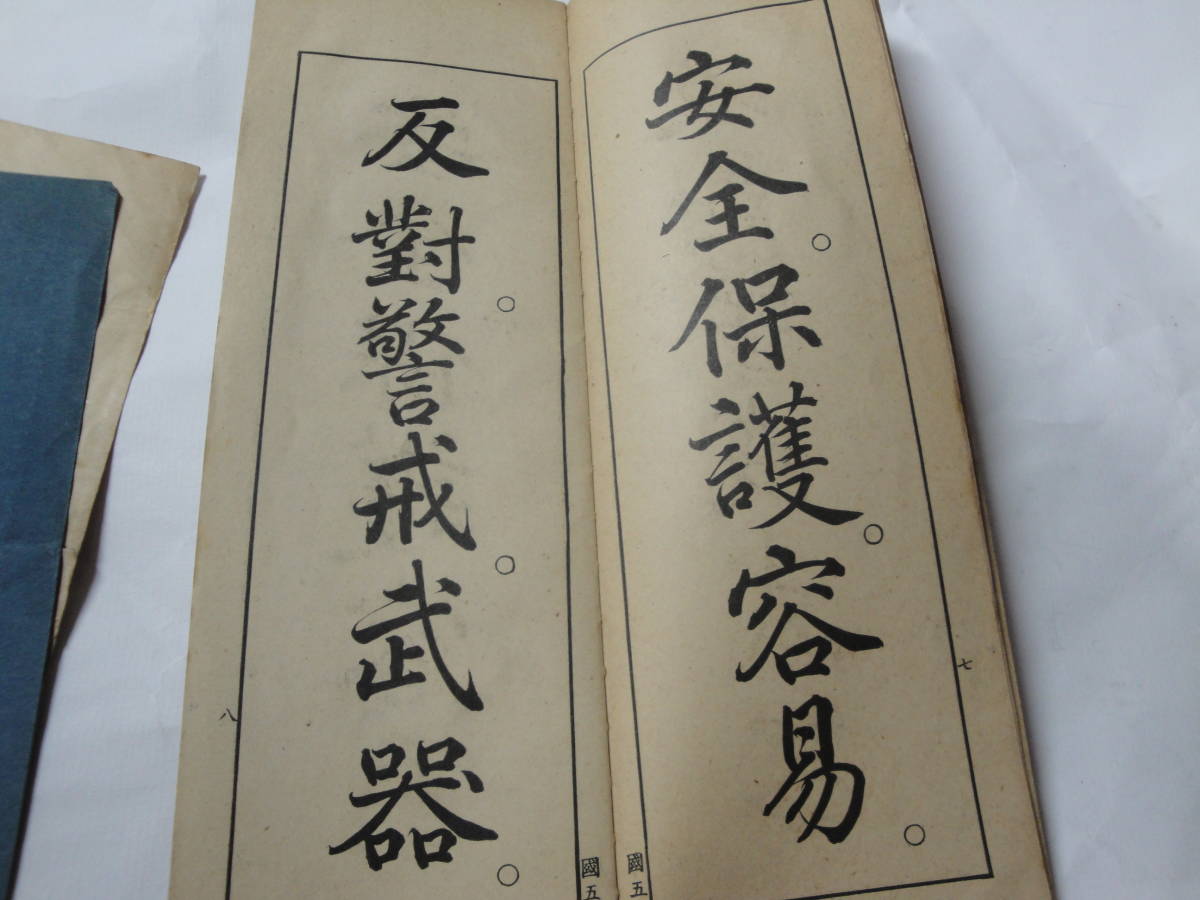 安全。保護。容易。
七
國五
反對。警戒。武器。
八
國五